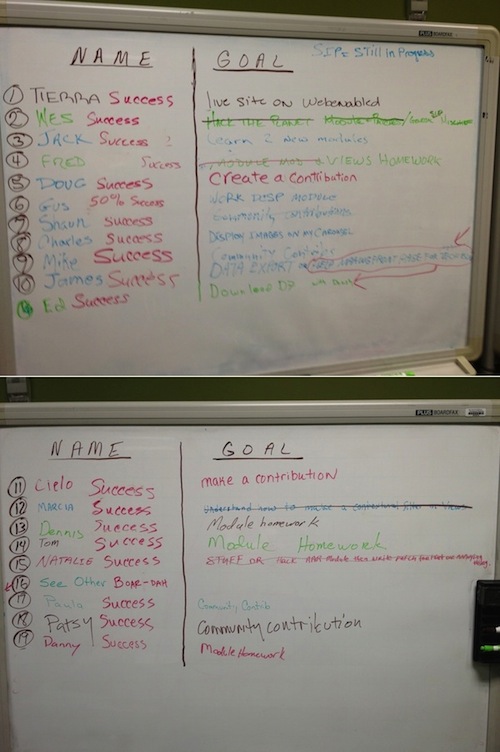 PLUS BOARDFAX
NAME GOAL SIPE Still In Progress
1 TIERRA Success live site on Webenabled
2 WES Success HACK THE PLANET
3 JACK Success ? Learn 2 new modules
4 FRED Success VIEWS HOMEWORK
5 DOUG Success Create a Contribution
6 Gus 50% Success WORK DISP MODULE
7 Shaun Success Community Contributions
8 Charles Success DISPLAY IMAGES IN MY CAROUSEL
9 Mike Success Community Contribs
10 James Success DATA EXPORT OR MANAGEMENT
Ed Success Download D7
PLUS BOARDFAX
NAME GOAL
11 Cielo Success make a contribution
12 MARCIA Success Understand how to make a contextual filter in Views
13 Dennis Success Module homework
14 Tom Success Module Homework
15 NATALIE Success STUFF OR HACK Module then write patch
16 See Other BOAR-DAH
17 Paula Success Community Contrib
18 Patsy Success Community contribution
19 Danny Success Module Homework